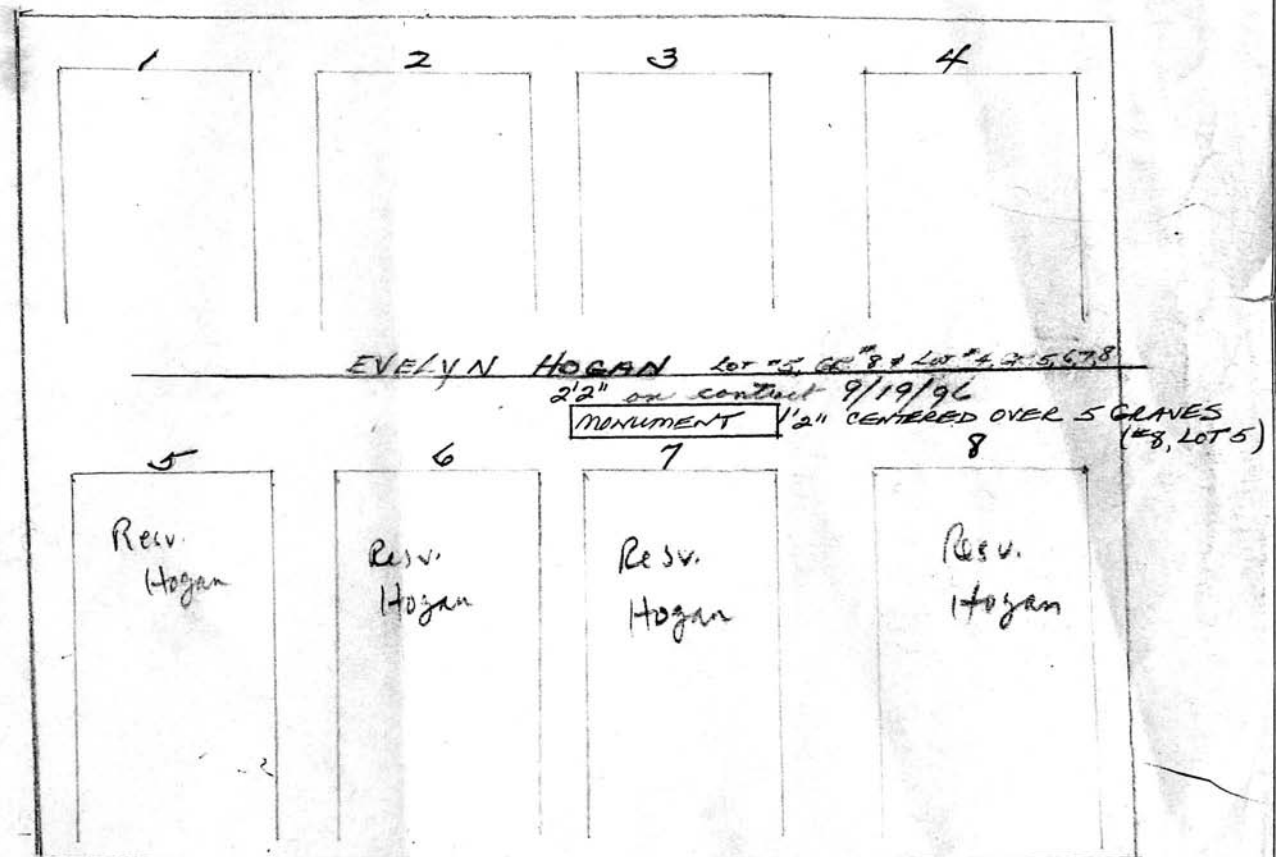 1 2 3 4
EVELYN HOGAN LOT #5, GR #8 & LOT #4, GR 5,6,7,8
2'2" on contract 9/19/96
MONUMENT 1'2" CENTERED OVER 5 GRAVES
(#8, LOT 5)
5 6 7 8
Resv. Resv. Resv. Resv.
Hogan Hogan Hogan Hogan